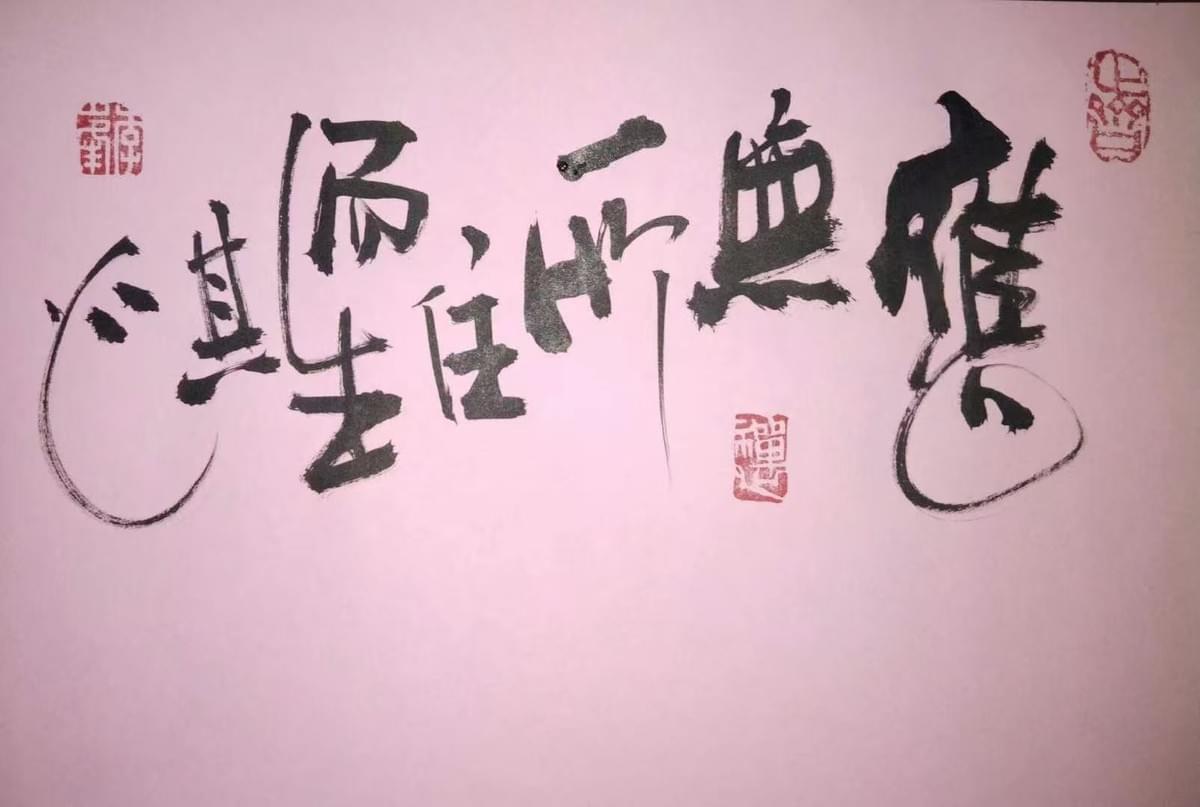 應無所住而生其心
禪